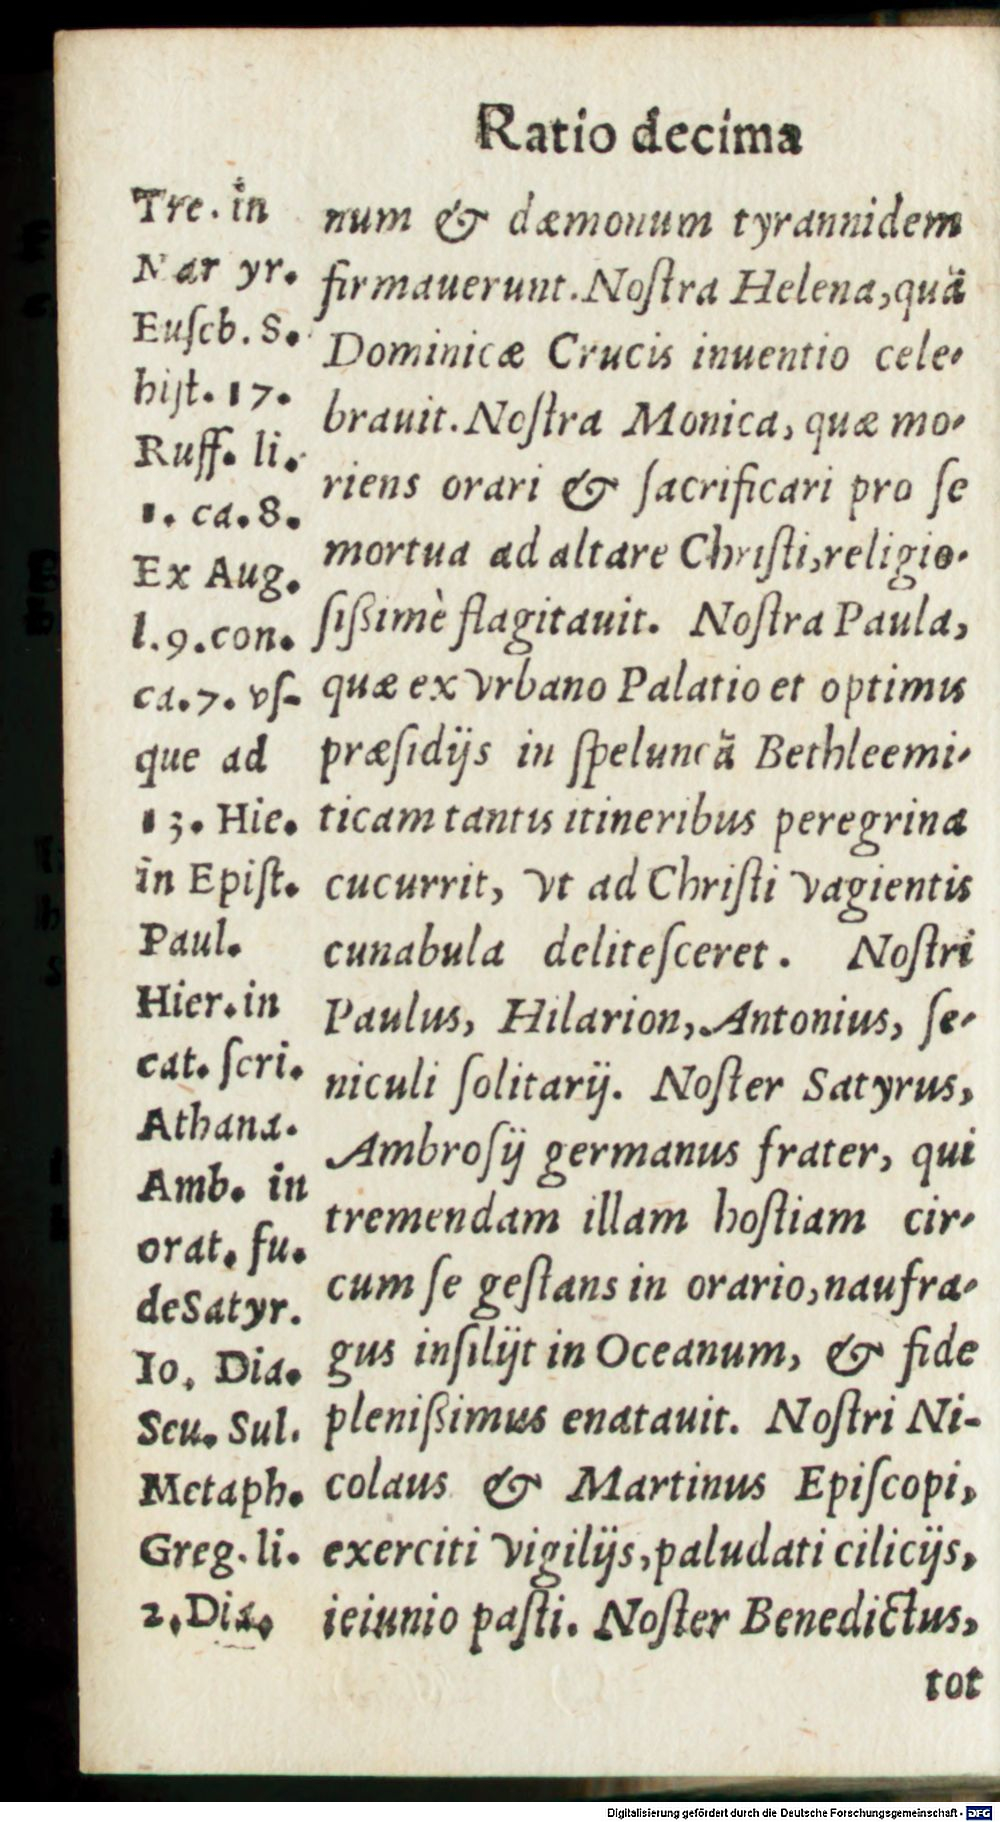 Ratio decima
Tre. in
Nar yr.
Euſeb. 8.
hiſt. 17.
Ruff. li.
1. ca. 8.
Ex Aug.
l. 9. con.
ca. 7. vſ-
que ad
13. Hie.
in Epiſt.
Paul.
Hier. in
cat. ſcri.
Athana.
Amb. in
orat. fu.
de Satyr.
Io. Dia.
Seu. Sul.
Metaph.
Greg. li.
2. Dia.
num & dæmonum tyrannidem
firmauerunt. Noſtra Helena, quã
Dominicæ Crucis inuentio cele-
brauit. Noſtra Monica, quæ mo-
riens orari & ſacrificari pro ſe
mortua ad altare Chriſti, religio-
ſißimè flagitauit. Noſtra Paula,
quæ ex vrbano Palatio et optimis
præſidijs in ſpeluncã Bethleemi-
ticam tantis itineribus peregrina
cucurrit, vt ad Chriſti vagientis
cunabula deliteſceret. Noſtri
Paulus, Hilarion, Antonius, ſe-
niculi ſolitarij. Noſter Satyrus,
Ambroſij germanus frater, qui
tremendam illam hoſtiam cir-
cum ſe geſtans in orario, naufra-
gus inſilijt in Oceanum, & fide
plenißimus enatauit. Noſtri Ni-
colaus & Martinus Epiſcopi,
exerciti vigilijs, paludati cilicijs,
ieiunio paſti. Noſter Benedictus,
tot
Digitalisierung gefördert durch die Deutsche Forschungsgemeinschaft - DFG